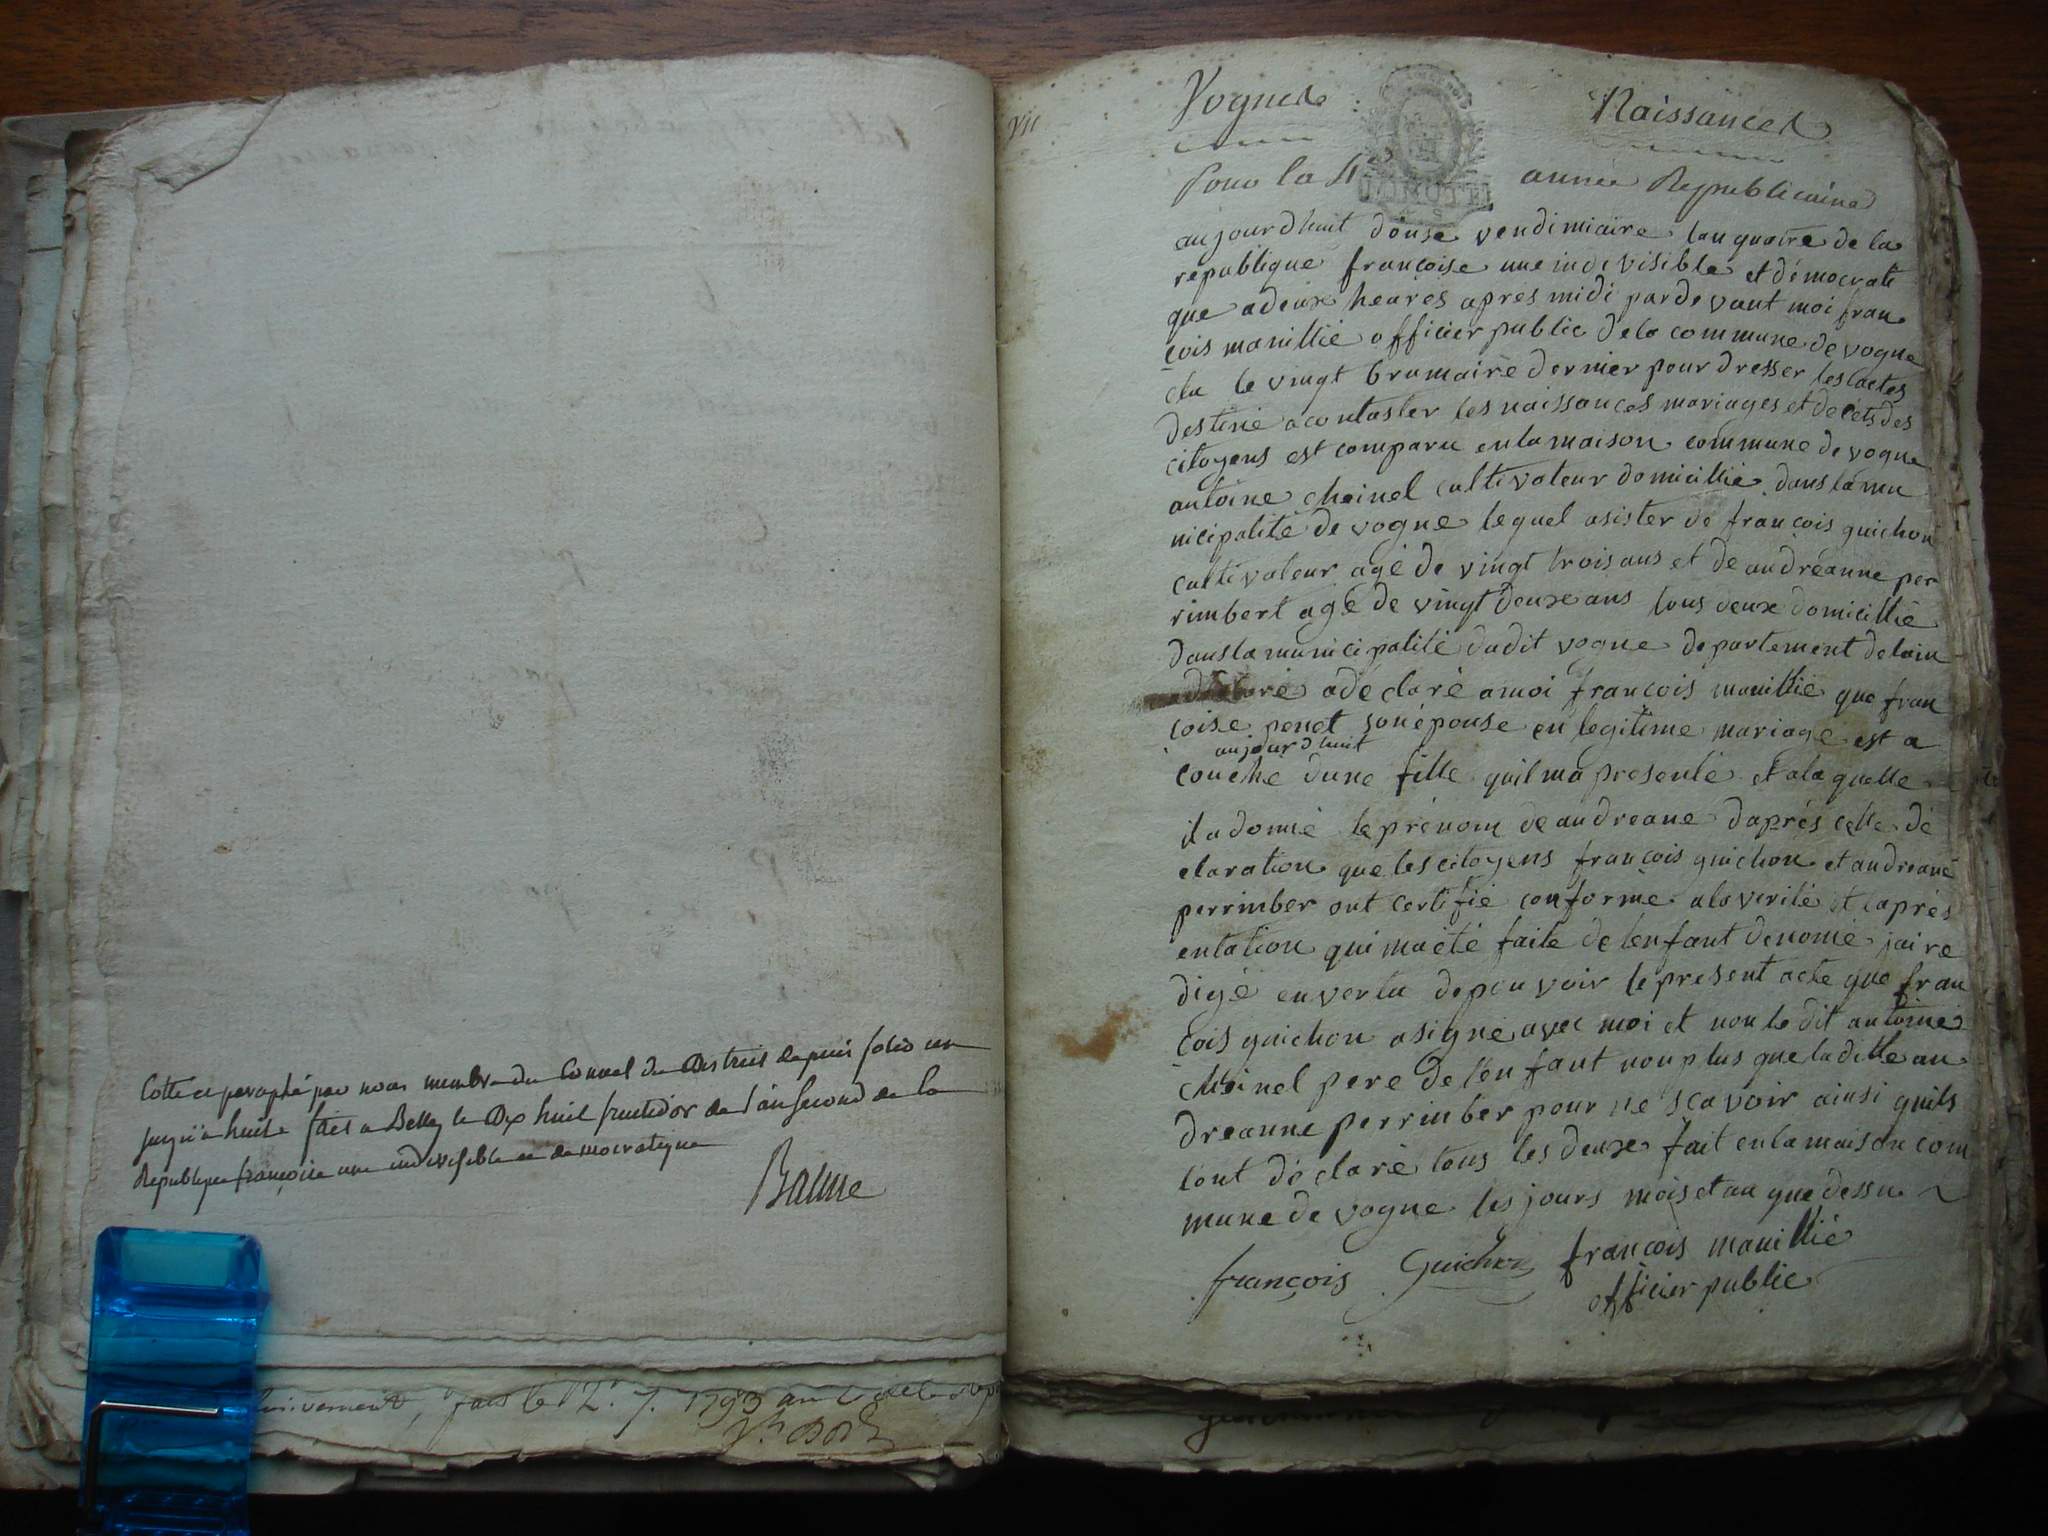 Cotté et paraphé par nous membre du Conseil du District depuis folio un
jusqu'à huit fait a Belley le Dix huit fructidor de l'an Second de la
Republique françoise une indivisible et democratique
Baume
fait le 12. 7. 1793 an 2 de la
Vogne
Naissances
Pour la 4e année Republicaine
aujourdhuit douse vendimiaire lan quatre de la
republique francoise une indivisible et démocrati
que a deux heures apres midi pardevant moi fran
cois manillié officier public de la commune de vogne
élu le vingt brumaire dernier pour dresser les lactes
destiné a contaster les naissances mariages et décéts des
citoyens est comparu en la maison commune de vogne
antoine choinel cultivateur domicillié dans la mu
nicipalité de vogne lequel asister de francois guichon
cultivateur agé de vingt trois ans et de andréanne per
rimbert agé de vingt deux ans tous deux domicillié
dans la municipalité dudit vogne departement delain
a déclaré a moi francois manillié que fran
coise penet son épouse en legitime mariage est a
aujourdhuit
couché dune fille quil ma presenté et a laquelle
il a donné le prénom de andreane daprés celle dé
claration que les citoyens francois guichon et andreané
perrinber ont certifié conforme a la verité et la prés
entation qui ma été faite de lenfant denomé jai ré
digé en vertu de pouvoir le present acte que fran
cois guichon a signé avec moi et non le dit antoine
choinel pere de lenfant non plus que la ditte an
dreanne perrimber pour ne scavoir ainsi quils
lont déclaré tous les deux fait en la maison com
mune de vogne les jours mois et an que dessu
françois Guichon francois manillié
officier public